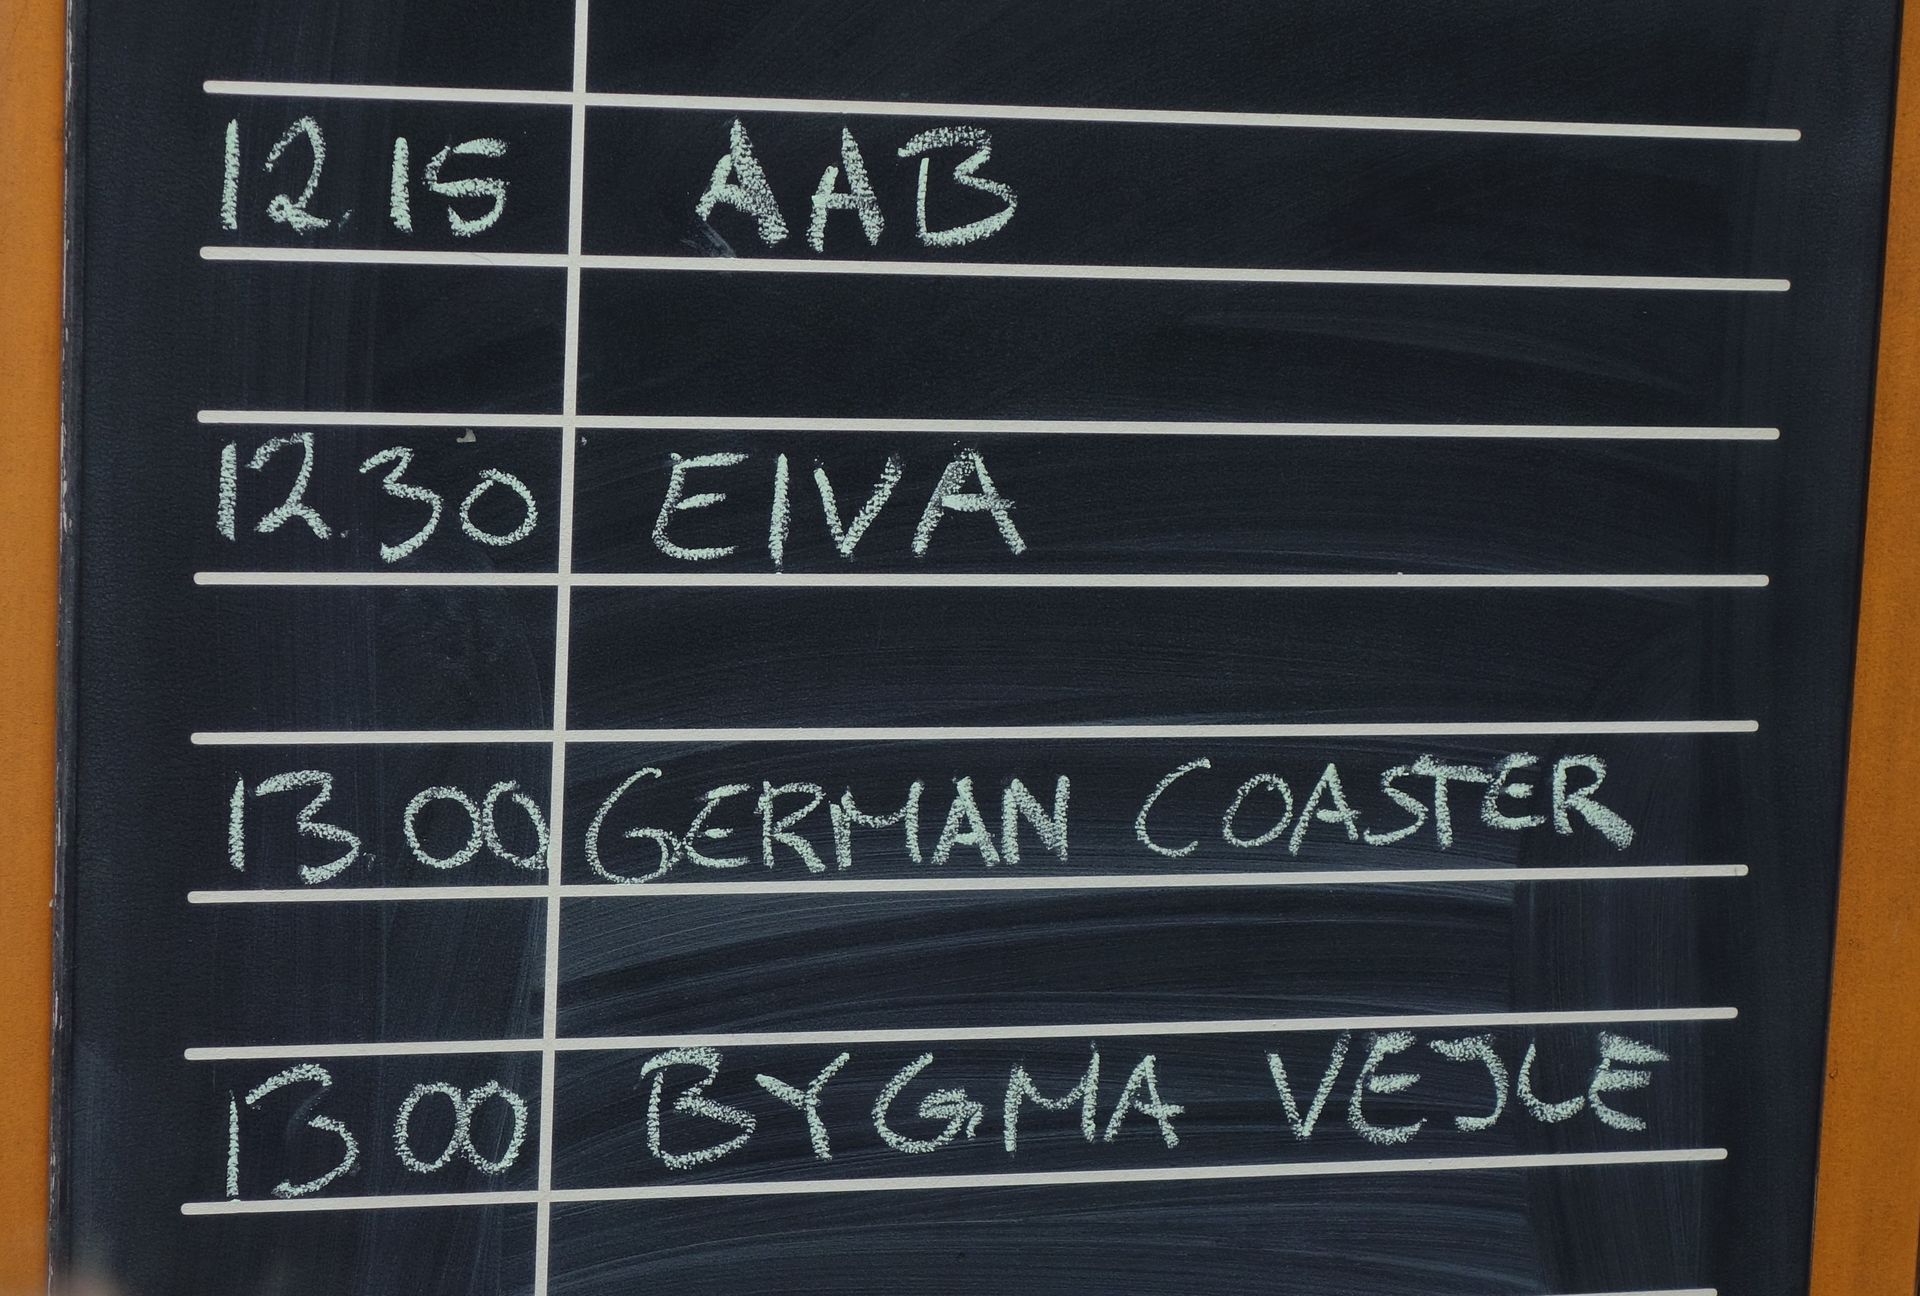 12.15 AAB
12.30 EIVA
13.00 GERMAN COASTER
13 00 BYGMA VEJLE